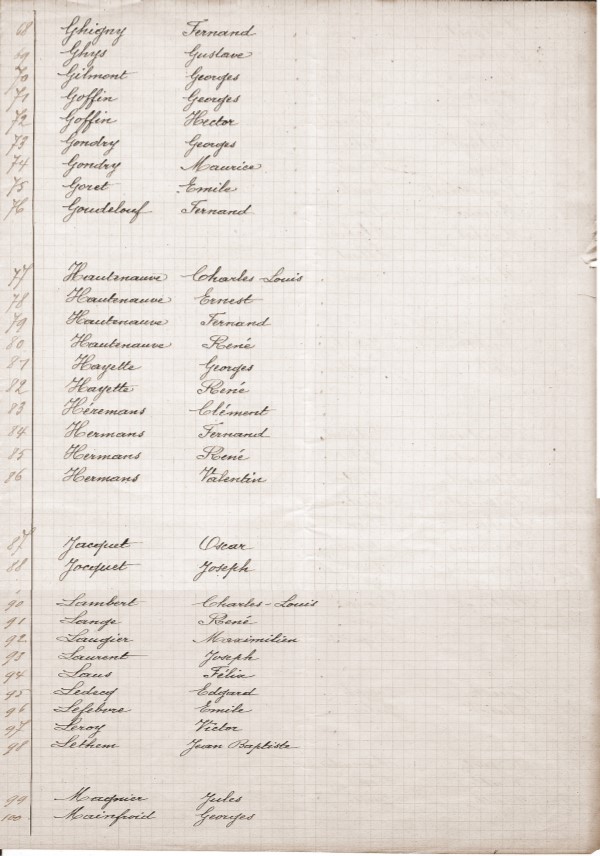 68 Ghigny Fernand
69 Ghys Gustave
70 Gilmont Georges
71 Goffin Georges
72 Goffin Hector
73 Gondry Georges
74 Gondry Maurice
75 Goret Emile
76 Goudelouf Fernand
77 Hautenauve Charles-Louis
78 Hautenauve Ernest
79 Hautenauve Fernand
80 Hautenauve René
81 Hayette Georges
82 Hayette René
83 Héremans Clément
84 Hermans Fernand
85 Hermans René
86 Hermans Valentin
87 Jacquet Oscar
88 Jocquet Joseph
90 Lambert Charles-Louis
91 Lange René
92 Laugier Maximilien
93 Laurent Joseph
94 Laus Félix
95 Ledecq Edgard
96 Lefebvre Emile
97 Leroy Victor
98 Lethem Jean Baptiste
99 Magnier Jules
100 Mainfroid Georges